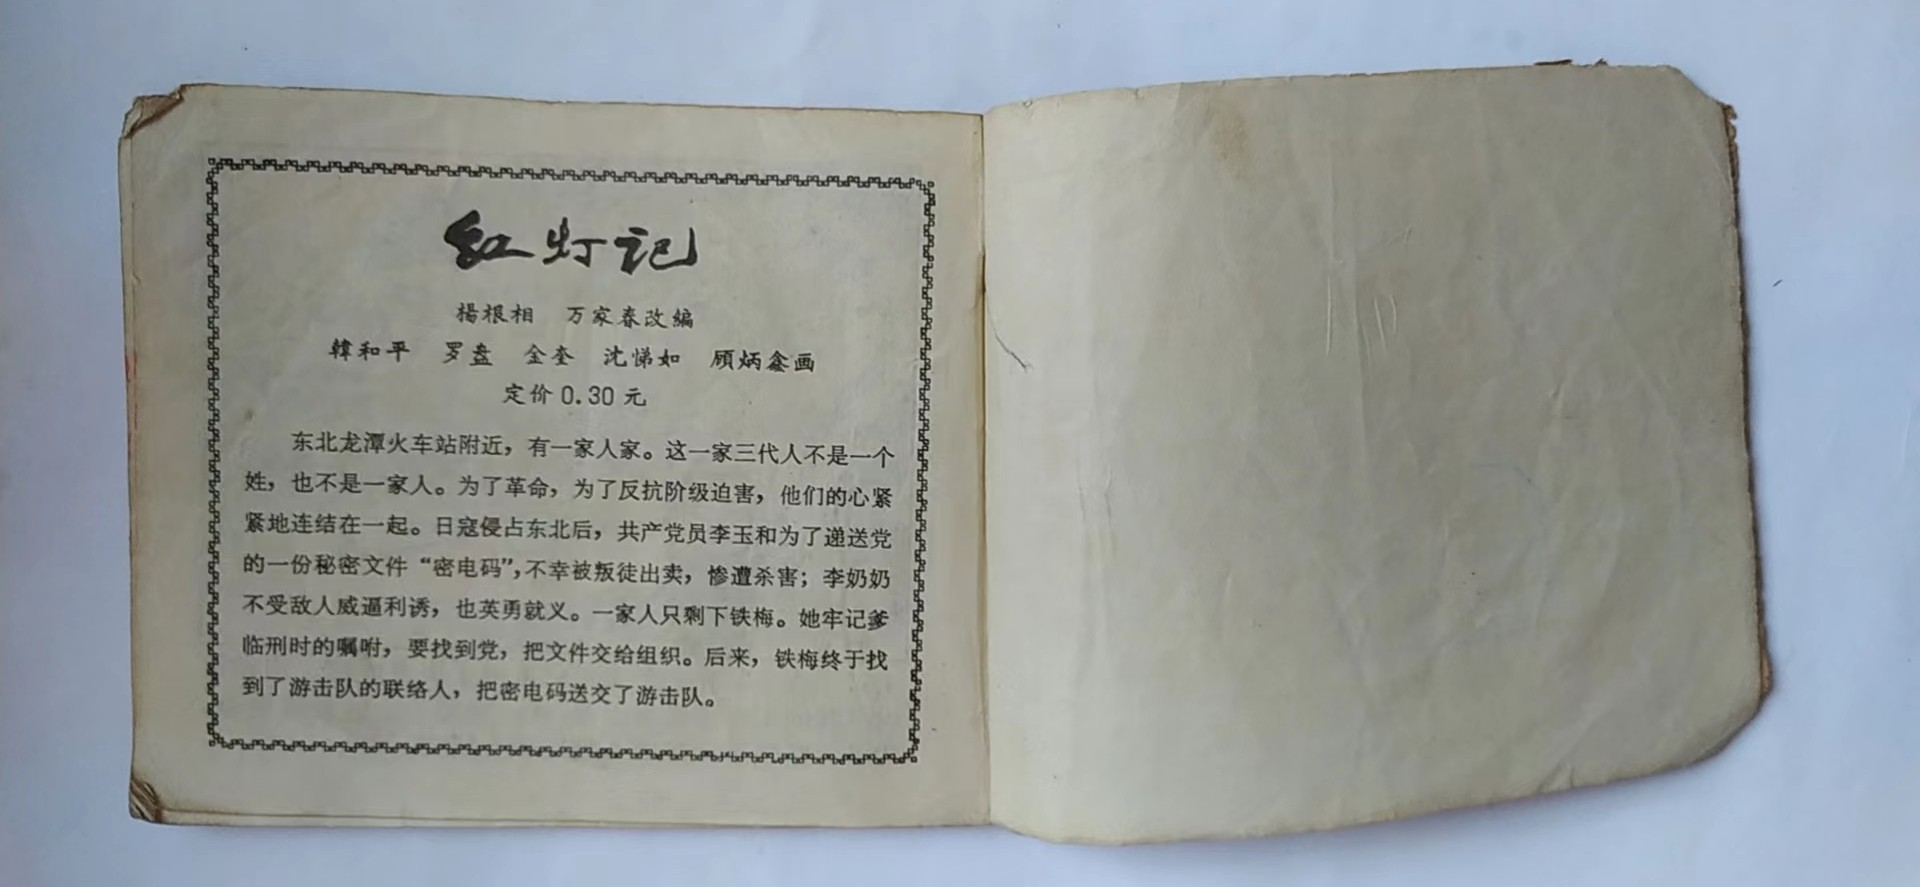 红灯记
楊根相 万家春改編
韓和平 罗盘 金奎 沈悌如 顾炳鑫画
定价0.30元
东北龙潭火车站附近，有一家人家。这一家三代人不是一个
姓，也不是一家人。为了革命，为了反抗阶级迫害，他们的心紧
紧地连结在一起。日寇侵占东北后，共产党员李玉和为了递送党
的一份秘密文件“密电码”，不幸被叛徒出卖，惨遭杀害；李奶奶
不受敌人威逼利诱，也英勇就义。一家人只剩下铁梅。她牢记爹
临刑时的嘱咐，要找到党，把文件交给组织。后来，铁梅终于找
到了游击队的联络人，把密电码送交了游击队。